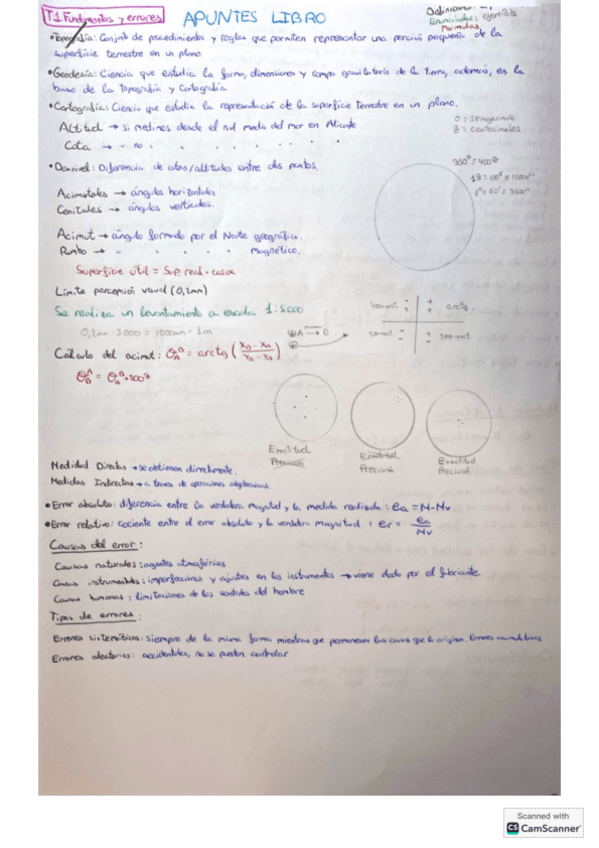 T1 Fundamentos y errores
APUNTES LIBRO
Enunciados: ejercicios
Formulas
• Topografía: Conjunto de procedimientos y reglas que permiten representar una porción pequeña de la
superficie terrestre en un plano
• Geodesia: Ciencia que estudia la forma, dimensiones y campo gravitatorio de la tierra, es la
base de la Topografía y Cartografía
• Cartografía: Ciencia que estudia la representación de la superficie terrestre en un plano.
Altitud → si medimos desde el nivel medio del mar en Alicante
Cota → " no " " " " " " "
• Desnivel: Diferencia de cotas/altitudes entre dos puntos.
360º = 400g
Acimutales → ángulos horizontales
Cenitales → ángulos verticales.
Acimut → ángulo formado por el Norte geográfico.
Rumbo → " " " " " magnético.
Superficie útil = Sup real - casa
Límite percepción visual (0,2mm)
Se realiza un levantamiento a escala 1:5000
0,2mm · 5000 = 1000mm = 1m
Cálculo del acimut: θ_A^B = arctg (X_B - X_A / Y_B - Y_A)
θ_B^A = θ_A^B + 200g
Exactitud
Precisión
Exactitud
Precisión
Exactitud
Precisión
Medidas Directas → se obtienen directamente.
Medidas Indirectas → a traves de operaciones algebraicas.
• Error absoluto: diferencia entre la verdadera magnitud y la medida realizada: ea = M - Mv
• Error relativo: cociente entre el error absoluto y la verdadera magnitud: er = ea / Mv
Causas del error:
Causas naturales: agentes atmosféricos
Causas instrumentales: imperfecciones y ajustes en los instrumentos → viene dado por el fabricante.
Causas humanas: limitaciones de los sentidos del hombre
Tipos de errores:
Errores sistemáticos: siempre de la misma forma mientras que permanecen las causas que lo originan. Errores acumulativos
Errores aleatorios: accidentales, no se pueden controlar
Scanned with
CS CamScanner